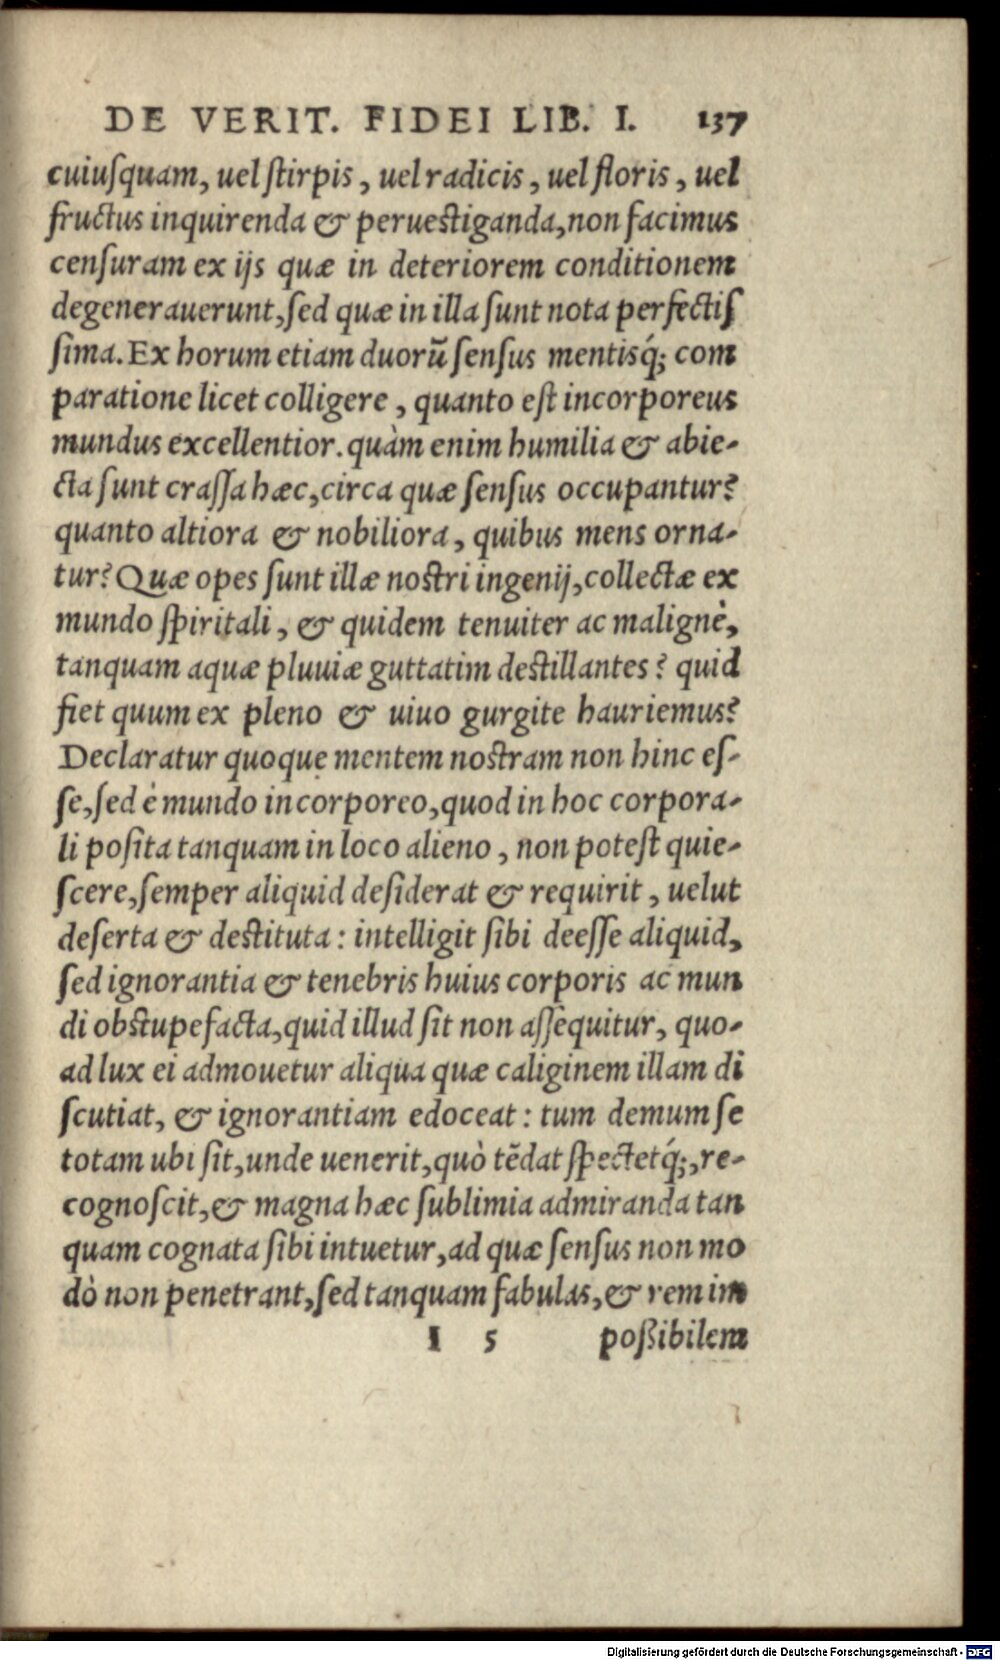 DE VERIT. FIDEI LIB. I. 137
cuiuſquam, uel ſtirpis, uel radicis, uel floris, uel
fructus inquirenda & perueſtiganda, non facimus
cenſuram ex ijs quæ in deteriorem conditionem
degenerauerunt, ſed quæ in illa ſunt nota perfectiſ
ſima. Ex horum etiam duorū ſenſus mentisq́; com
paratione licet colligere, quanto eſt incorporeus
mundus excellentior. quàm enim humilia & abie-
cta ſunt craſſa hæc, circa quæ ſenſus occupantur?
quanto altiora & nobiliora, quibus mens orna-
tur? Quæ opes ſunt illæ noſtri ingenij, collectæ ex
mundo ſpiritali, & quidem tenuiter ac malignè,
tanquam aquæ pluuiæ guttatim deſtillantes? quid
fiet quum ex pleno & uiuo gurgite hauriemus?
Declaratur quoque mentem noſtram non hinc eſ-
ſe, ſed è mundo incorporeo, quod in hoc corpora-
li poſita tanquam in loco alieno, non poteſt quie-
ſcere, ſemper aliquid deſiderat & requirit, uelut
deſerta & deſtituta: intelligit ſibi deeſſe aliquid,
ſed ignorantia & tenebris huius corporis ac mun
di obſtupefacta, quid illud ſit non aſſequitur, quo-
ad lux ei admouetur aliqua quæ caliginem illam di
ſcutiat, & ignorantiam edoceat: tum demum ſe
totam ubi ſit, unde uenerit, quò tēdat ſpectetq́;, re-
cognoſcit, & magna hæc ſublimia admiranda tan
quam cognata ſibi intuetur, ad quæ ſenſus non mo
dò non penetrant, ſed tanquam fabulas, & rem im
I 5 poßibilem
Digitalisierung gefördert durch die Deutsche Forschungsgemeinschaft - DFG